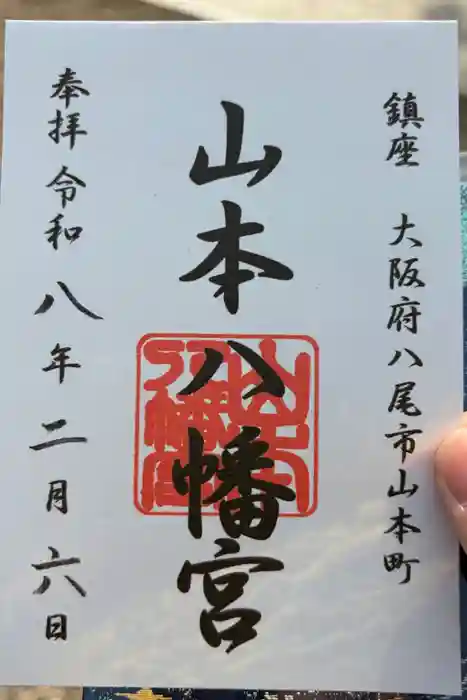 鎮座　大阪府八尾市山本町
山本八幡宮
奉拝 令和八年二月六日